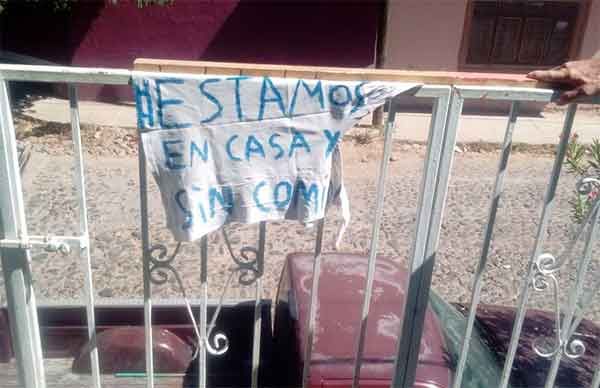 #ESTAMOS
EN CASA Y
SIN COMI